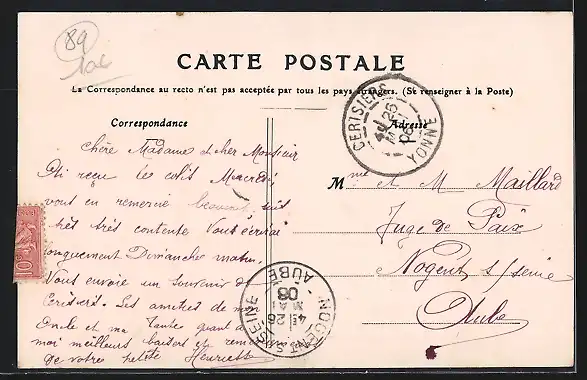 89
10c
CARTE POSTALE
La Correspondance au recto n'est pas acceptée par tous les pays étrangers. (Se renseigner à la Poste)
Correspondance
Adresse
CERISIERS
25
MAI
08
YONNE
Chère Madame et cher Monsieur
Ai reçu les colis Mercredi,
vous en remercie beaucoup suis
très très contente Vous écrirai
longuement Dimanche matin.
Vous envoie un souvenir de
Cerisiers. Les amitiés de mon
Oncle et ma Tante quant à
moi meilleurs baisers et
de votre petite Henriette
Mme et M Maillard
Juge de Paix
Nogent s/ Seine
Aube
10c
NOGENT-S-SEINE
4E
26
MAI
08
AUBE